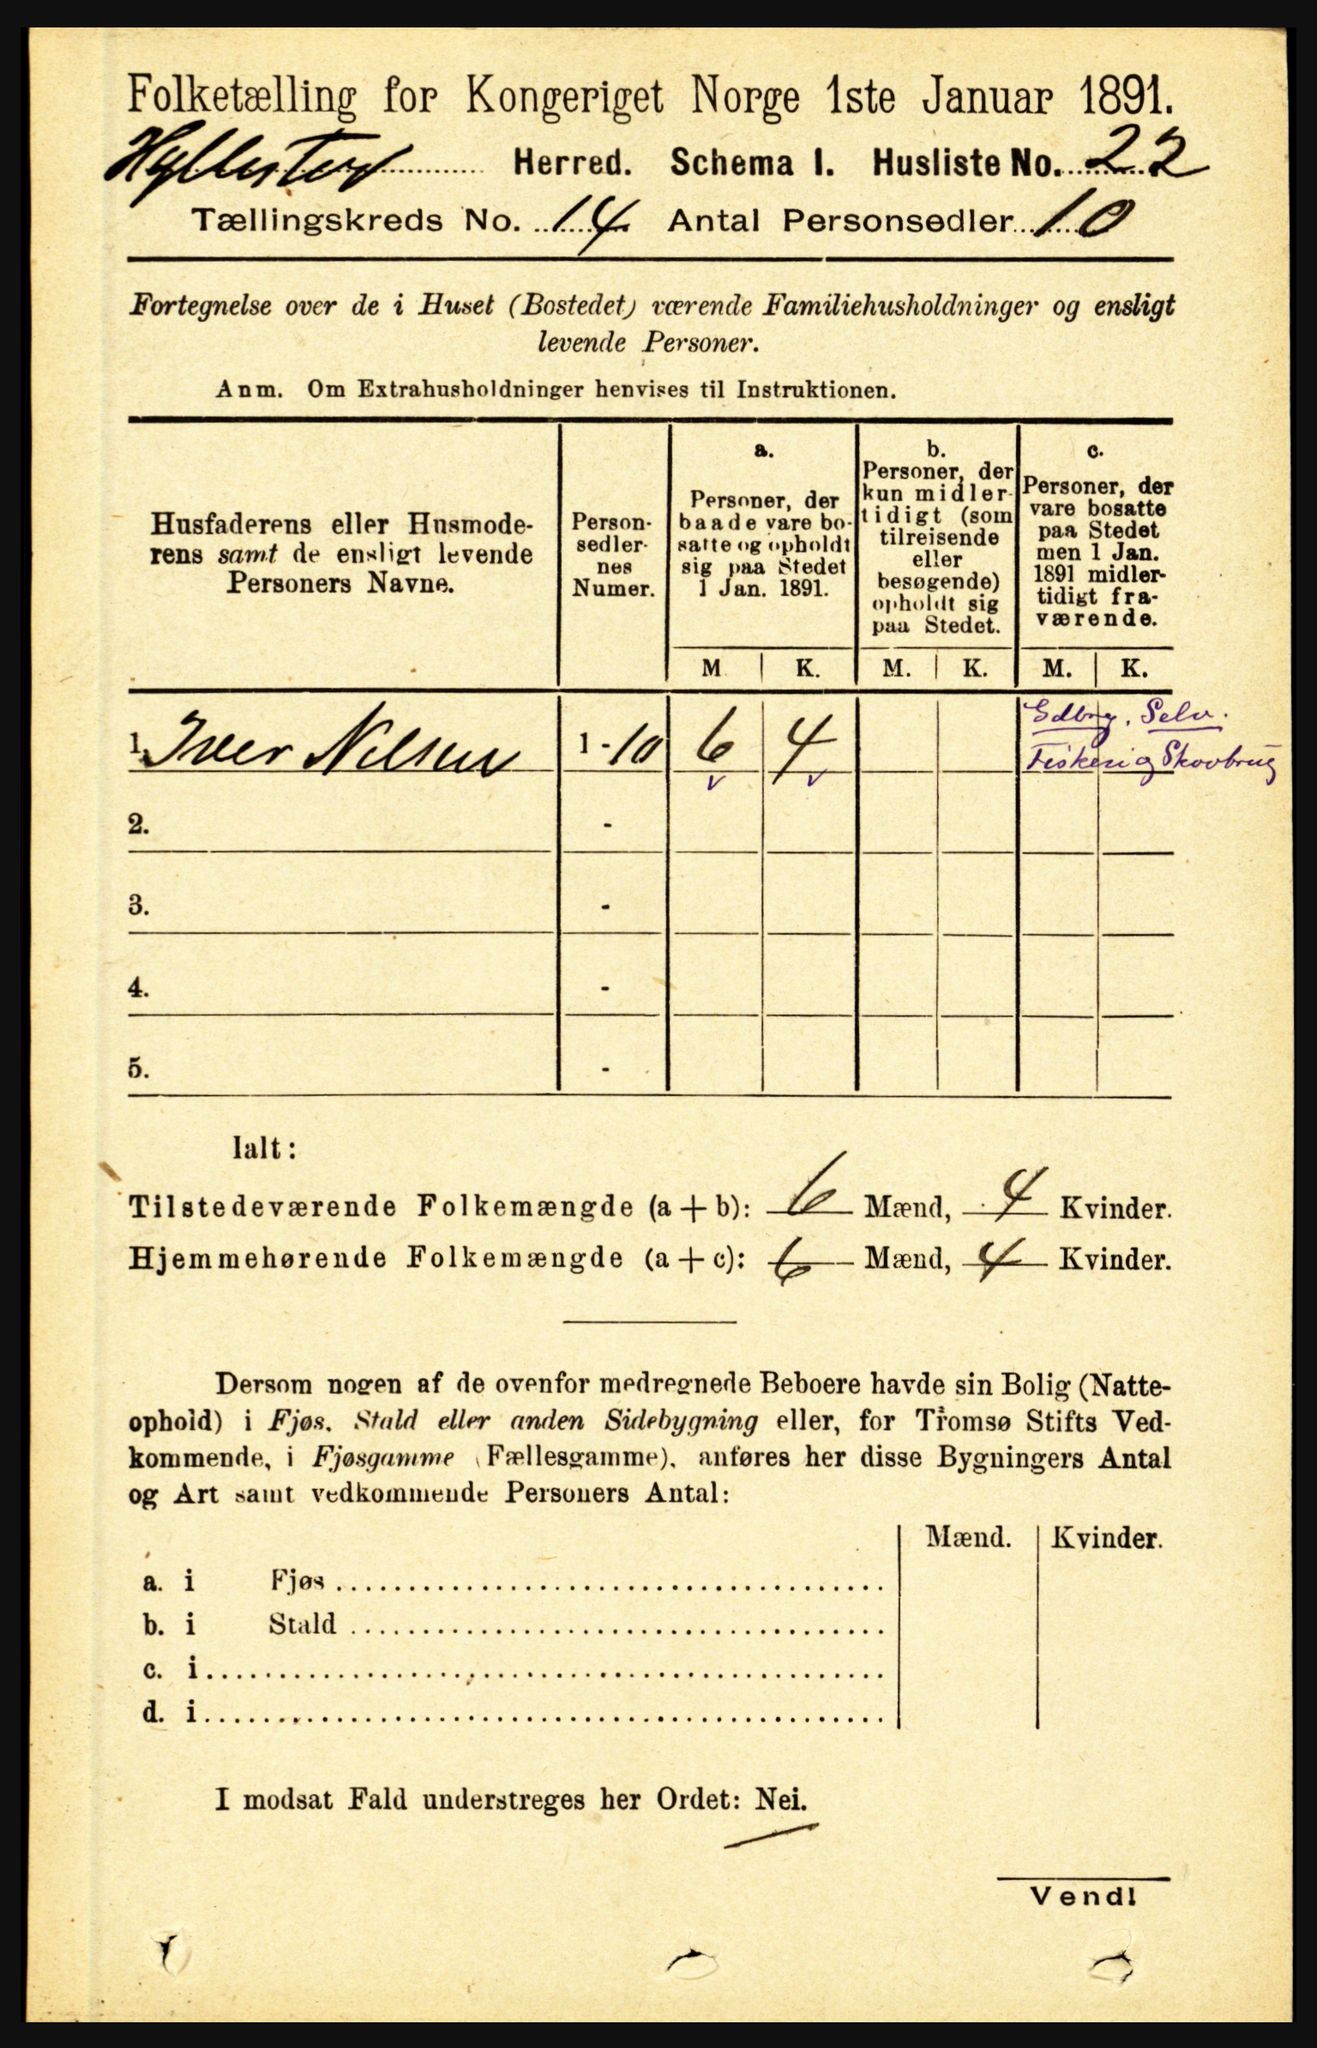 Folketælling for Kongeriget Norge 1ste Januar 1891.
Hyllestad Herred. Schema I. Husliste No. 22
Tællingskreds No. 14 Antal Personsedler 10
Fortegnelse over de i Huset (Bostedet) værende Familiehusholdninger og ensligt
levende Personer.
Anm. Om Extrahusholdninger henvises til Instruktionen.
Husfaderens eller Husmode-
rens samt de ensligt levende
Personers Navne.
Person-
sedler-
nes
Numer.
a.
Personer, der
baade vare bo-
satte og opholdt
sig paa Stedet
1 Jan. 1891.
b.
Personer, der
kun midler-
tidigt (som
tilreisende
eller
besøgende)
opholdt sig
paa Stedet.
c.
Personer, der
vare bosatte
paa Stedet
men 1 Jan.
1891 midler-
tidigt fra-
værende.
M K. M. K. M. K.
1. Iver Nilsen 1 - 10 6 4
Gdbrg. Selv.
Fiskeri og Skovbrug
2. -
3. -
4. -
5. -
Ialt:
Tilstedeværende Folkemængde (a + b): 6 Mænd, 4 Kvinder.
Hjemmehørende Folkemængde (a + c): 6 Mænd, 4 Kvinder.
Dersom nogen af de ovenfor medregnede Beboere havde sin Bolig (Natte-
ophold) i Fjøs, Stald eller anden Sidebygning eller, for Tromsø Stifts Ved-
kommende, i Fjøsgamme (Fællesgamme), anføres her disse Bygningers Antal
og Art samt vedkommende Personers Antal:
Mænd. Kvinder.
a. i Fjøs
b. i Stald
c. i
d. i
I modsat Fald understreges her Ordet: Nei.
Vend!